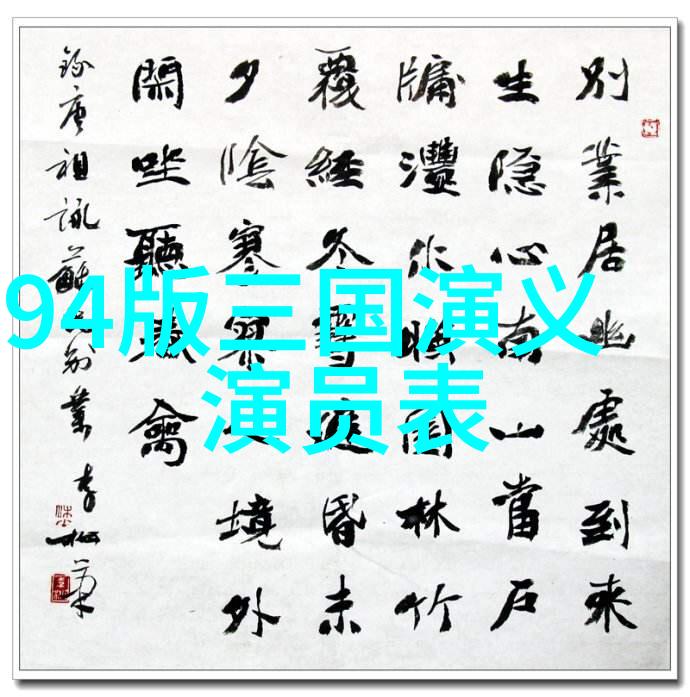 別業居幽處到来
生隐心南山當户
牖灃水映園林竹
覆經冬雪庭昏未
夕陰寥寥人境外
閑坐聽春禽
錄唐祖詠蘇氏別業
94版三国演义
演员表